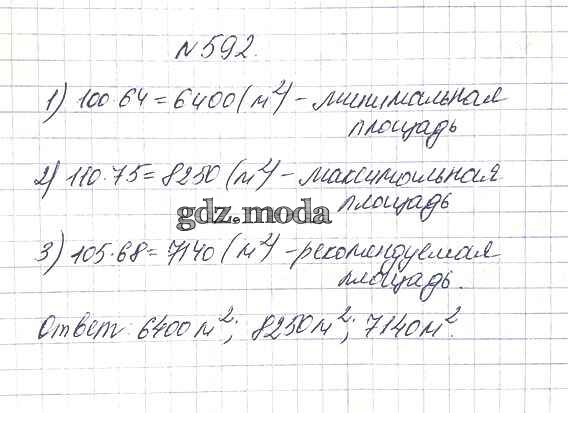 №592.
1) 100·64=6400(м²) - минимальная
площадь
2) 110·75=8250(м²) - максимальная
площадь
gdz.moda
3) 105·68=7140(м²) - рекомендуемая
площадь.
Ответ: 6400м²; 8250м²; 7140м².